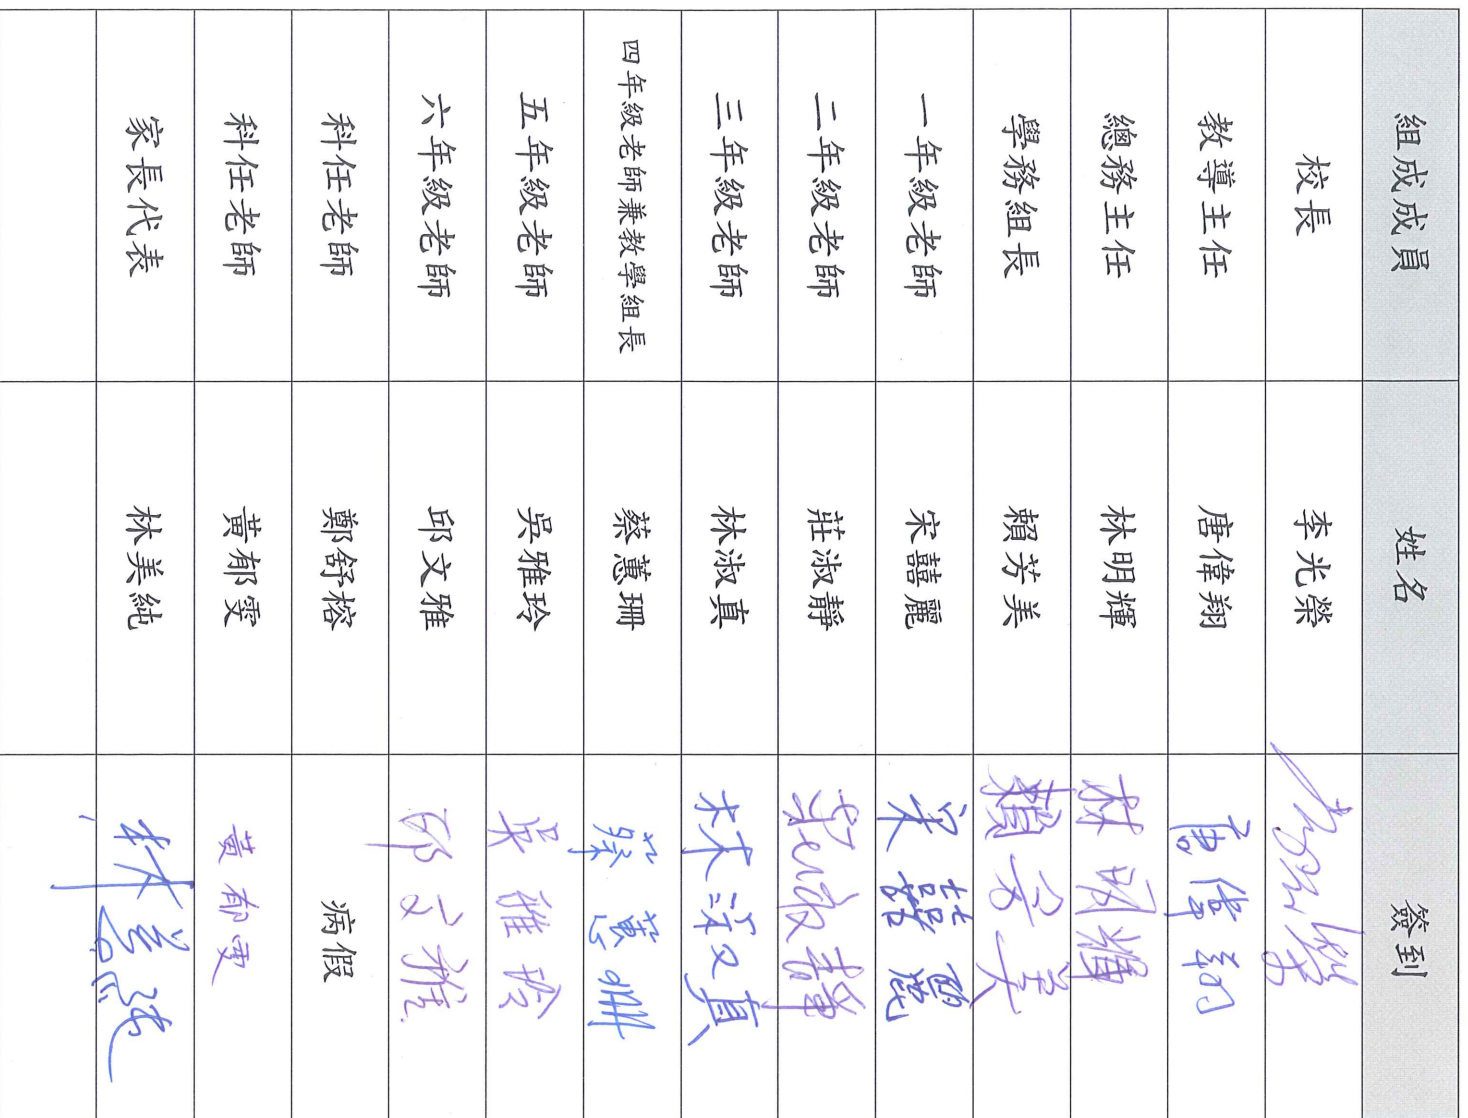 組成成員 姓名 簽到
校長 李光榮 李光榮
教導主任 唐偉翔 唐偉翔
總務主任 林明輝 林明輝
學務組長 賴芳美 賴芳美
一年級老師 宋囍麗 宋囍麗
二年級老師 莊淑靜 莊淑靜
三年級老師 林淑真 林淑真
四年級老師兼教學組長 蔡蕙珊 蔡蕙珊
五年級老師 吳雅玲 吳雅玲
六年級老師 邱文雅 邱文雅
科任老師 鄭舒榕 病假
科任老師 黃郁雯 黃郁雯
家長代表 林美純 林美純